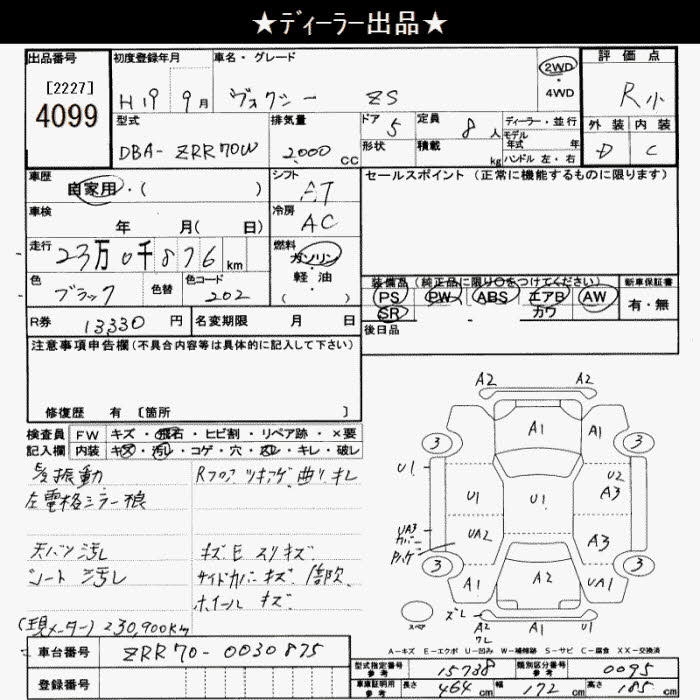 ★ディーラー出品★
出品番号
[2227]
4099
初度登録年月
H19 9月
車名・グレード
ヴォクシー ZS
2WD
・
4WD
評価点
R小
外装 内装
D C
型式
DBA-ZRR70W
排気量
2,000 CC
ドア 5
形状
定員 8人
積載 kg
ディーラー・並行
モデル
年式 年
ハンドル 左・右
車歴
自家用・( )
シフト
AT
セールスポイント (正常に機能するものに限ります)
車検
年 月( 日)
冷房
AC
走行
23万0千876 km
燃料
ガソリン
軽・油
( )
色
ブラック
色替
色コード
202
装備品 (純正品に限り○をつけてください)
PS PW ABS エアB AW
SR カワ
新車保証書
有・無
後日品
R券
13330 円
名変期限 月 日
注意事項申告欄(不具合内容等は具体的に記入して下さい)
修復歴 有 [箇所 ]
検査員
記入欄
FW キズ・飛石・ヒビ割・リペア跡・×要
内装 キズ・汚レ・コゲ・穴・スレ・キレ・破レ
振動
左電格ミラー
天バリ汚レ
シート汚レ
(現メーター)230,900Km
Rフロア ツキアゲ 曲り キレ
キズE スリキズ
サイドカバーキズ
ホイールキズ
A2 A2
A1
A1
A1
3 3
U1
U1
U1
U2
A3
UA3
カバー
UA2
A3
3 3
A1
A2
UA1
スペア
ズレ
A2
ワレ
A1
A-キズ E-エクボ U-凹み W-補修跡 S-サビ C-腐食 XX-交換済
車台番号
ZRR70-0030875
登録番号
型式指定番号
参考
15738
類別区分番号
参考
0095
車庫証明用
参考
長さ 464 cm 幅 172 cm 高さ 185 cm